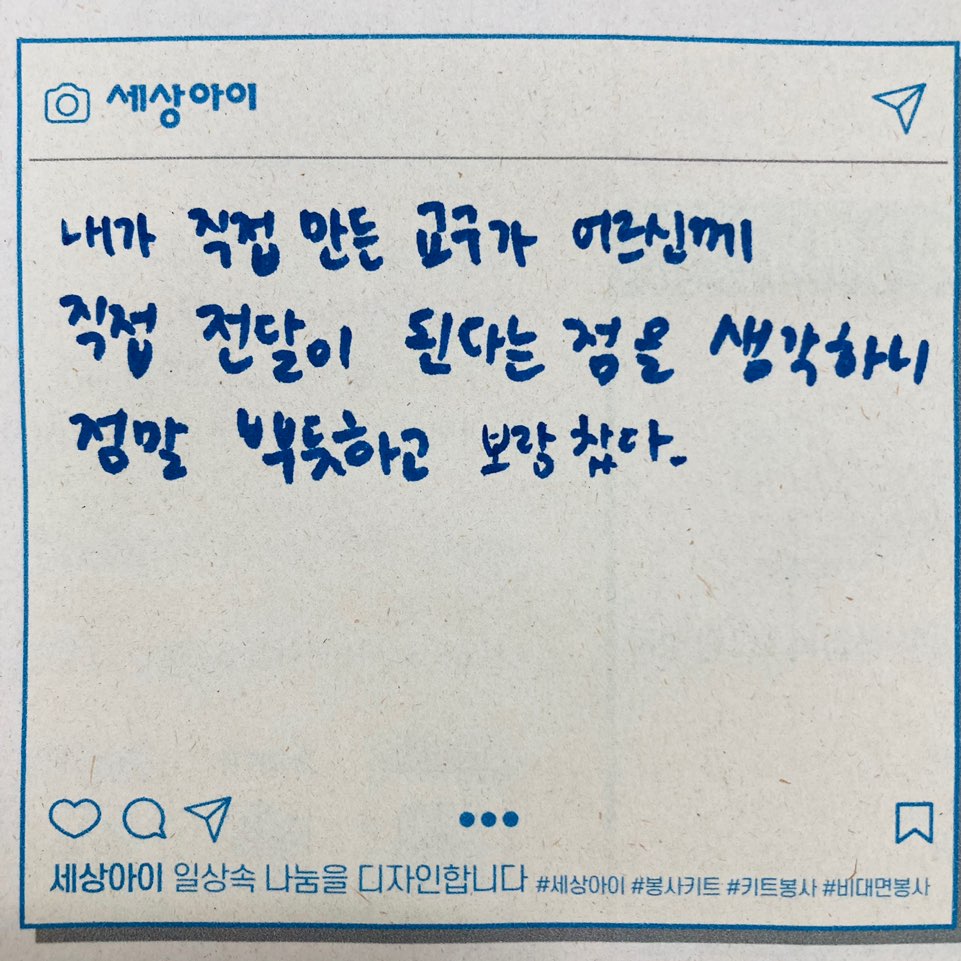 세상아이
내가 직접 만든 교구가 어르신께
직접 전달이 된다는 점을 생각하니
정말 뿌듯하고 보람찼다.
세상아이 일상속 나눔을 디자인합니다 #세상아이 #봉사키트 #키트봉사 #비대면봉사